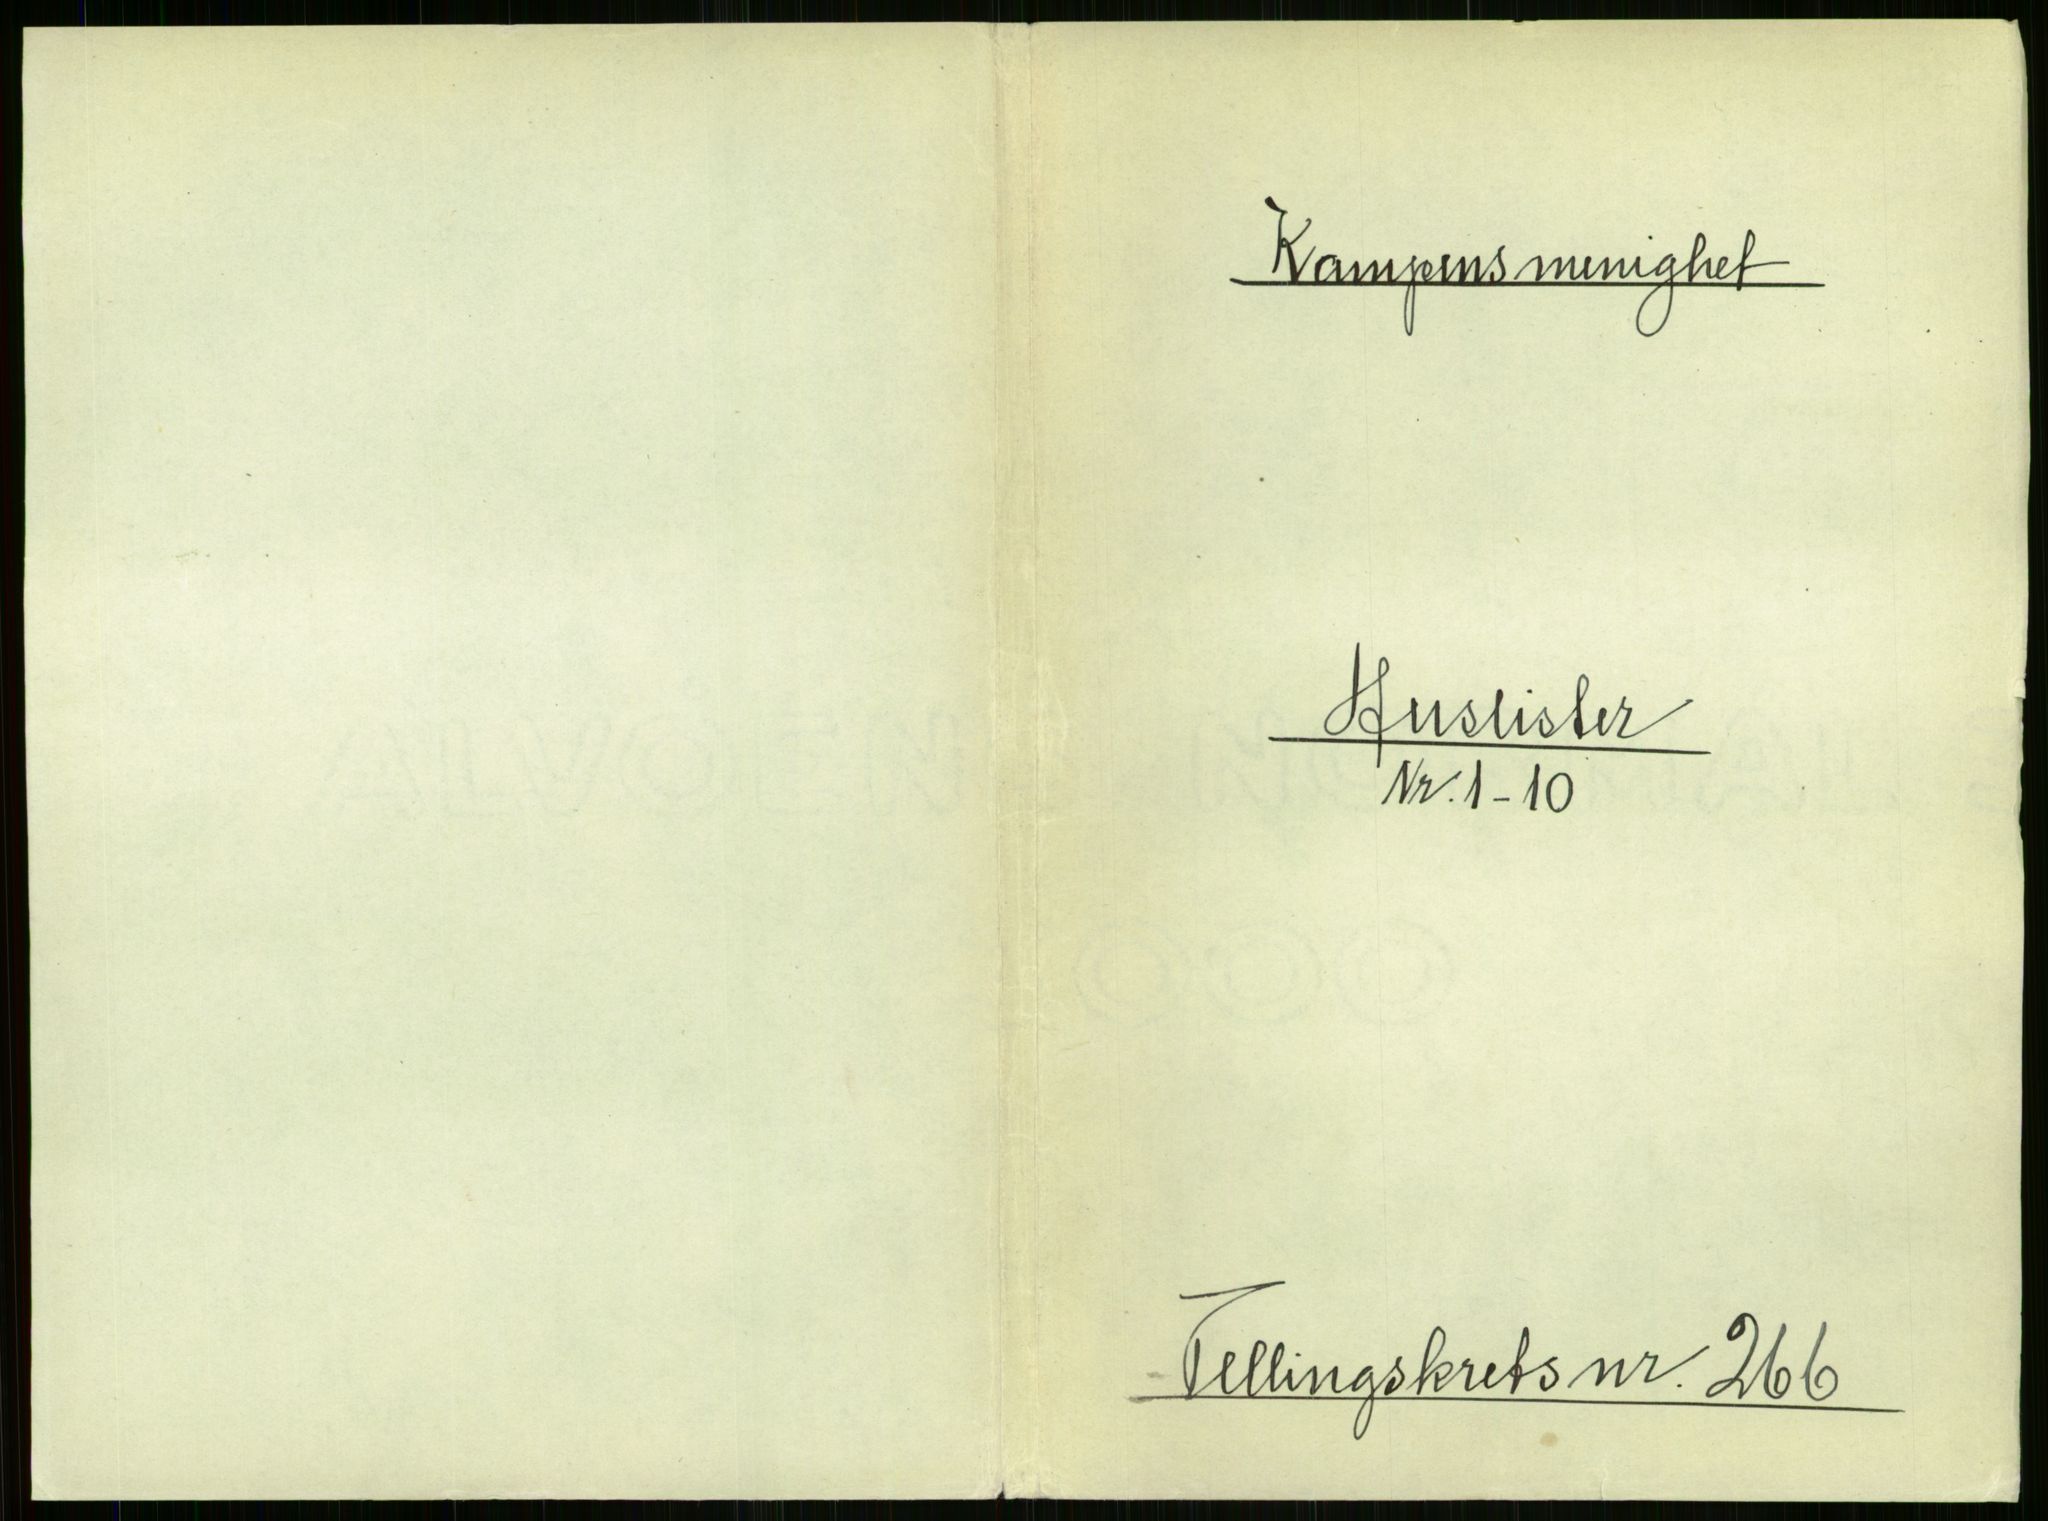 Kampens menighet
Huslister
Nr. 1-10
Tellingskrets nr. 266